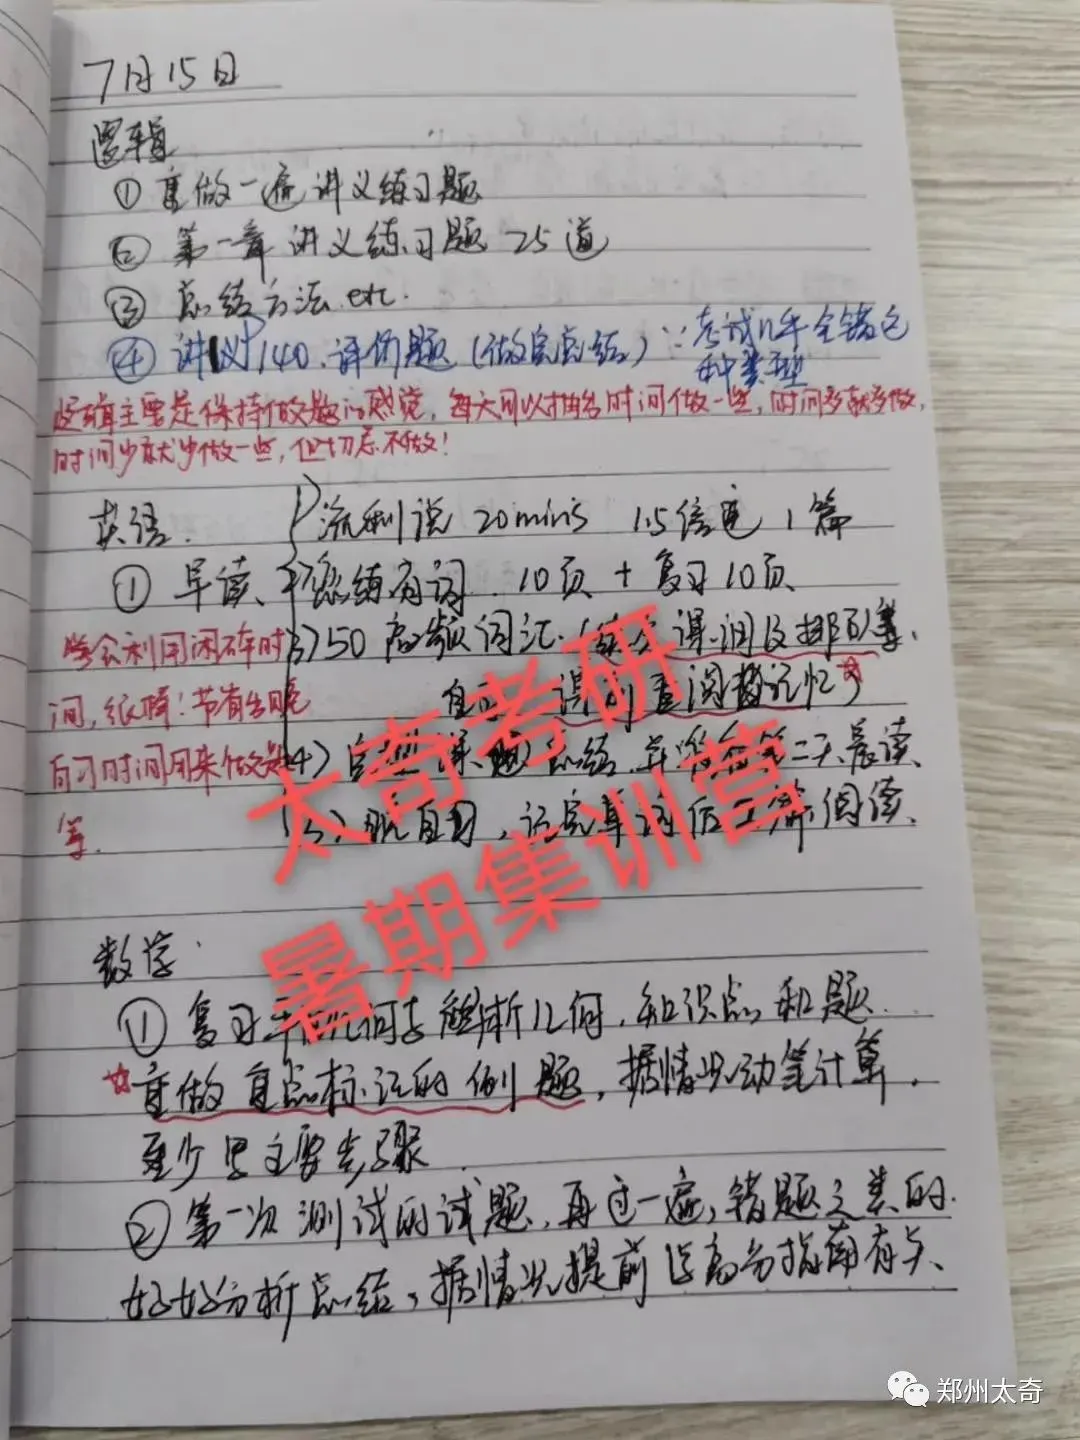 7月15日
逻辑
① 重做一遍讲义练习题
② 第一章讲义练习题 25道
③ 总结方法.etc.
④ 讲义140.评价题(做完总结) ∵考试几年全错包
种类型
逻辑主要是保持做题的感觉,每天可以抽出时间做一些,时间多就多做,
时间少就少做一些,但切忌不做!
英语.
1)流利说 20mins 1.5倍速 1篇
① 早读、2)恋练有词.10页+复习10页
学会利用闲碎时
3)50高频词汇.课间及排队等、
间,纸条!节省出晚
自 课间查阅 记忆
自习时间用来做题
4) 课题总结,并 第二天晨读、
等.
(5)晚自习,记完单词后 阅读、
太奇考研
暑期集训营
数学.
① 复习平面几何与解析几何,知识点和题.
重做重点标记的例题,据情况动笔计算,
至少思主要步骤.
② 第一次测试的试题,再过一遍,错题之类的.
好好分析总结,据情况提前 高分指南有关、
郑州太奇